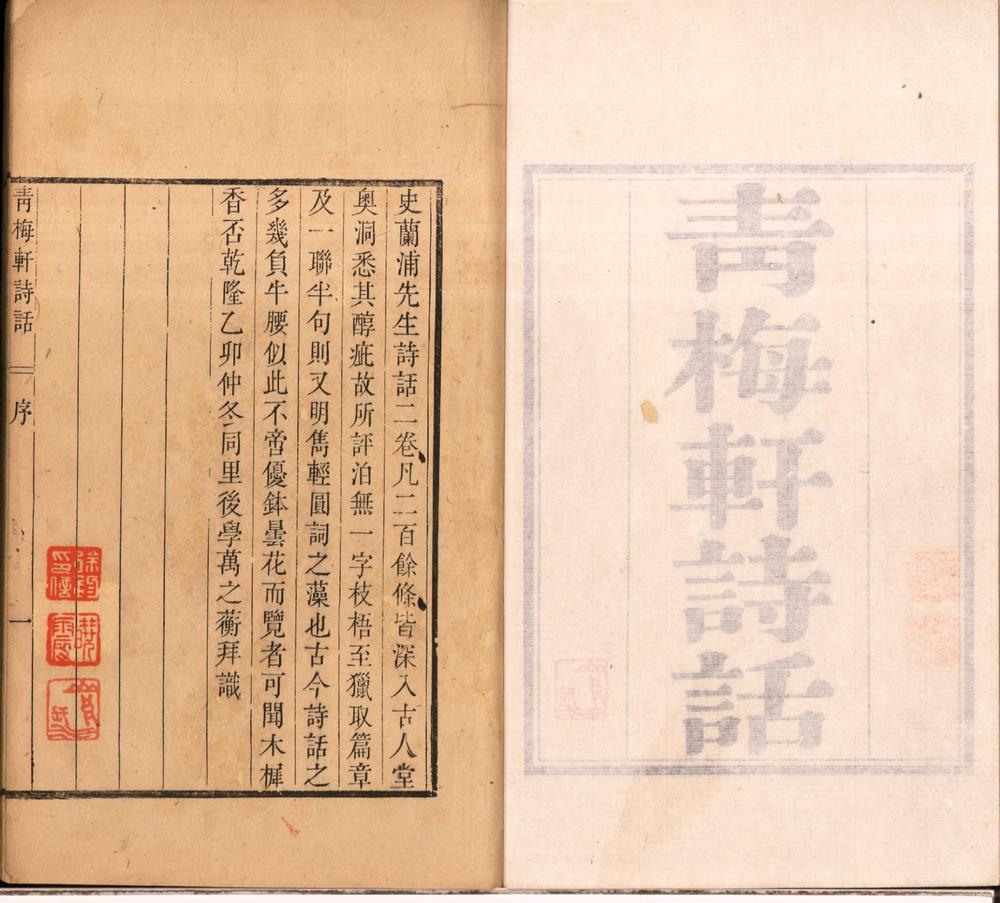 青梅軒詩話
史蘭浦先生詩話二卷凡二百餘條皆深入古人堂
奧洞悉其醇疵故所評泊無一字枝梧至獵取篇章
及一聯半句則又明雋輕圓詞之藻也古今詩話之
多幾負牛腰似此不啻優鉢曇花而覽者可聞木樨
香否乾隆乙卯仲冬同里後學萬之蘅拜識
青梅軒詩話
序
一